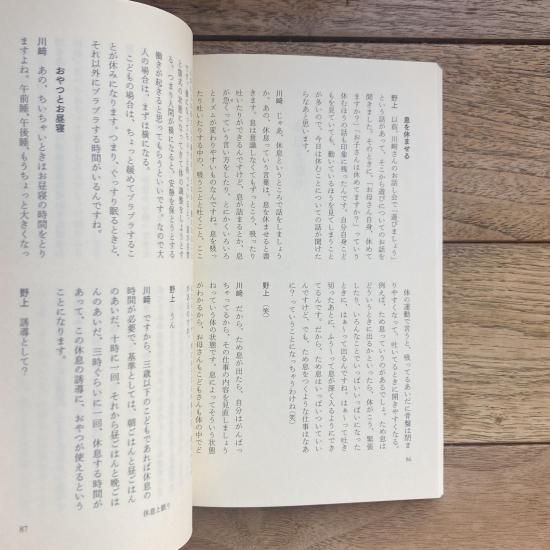 息を休ませる
野上　以前、川﨑さんのお話し会で「遊びましょう」
という話があって、そこから遊びについてのお話を
聞きました。そのときに、「お母さん自身、休めて
ますか？」「お子さんは休めてますか？」っていう
休むほうの話も印象に残ったんです。自分自身こど
もを見ていても、動いているほうを見てしまうこと
が多いので、今日は休むことについての話が聞けた
らなあと思います。
川﨑　じゃあ、休息というところで話をしましょう
か。あの、休息っていう言葉は、息を休ませると書
きます。息は意識しなくてもずっとこう、吸ったり
吐いたりできるんですけど、息が詰まるとか、息
が急くっていう言い方をしたり、とにかくいろいろ
とリズムが変わりやすいものなんですね。息を吸っ
たり吐いたりする中の、吸うことと吐くこと、ここ
体の運動で言うと、吸ってるあいだに骨盤は閉ま
りやすくなって、吐いてるときに開きやすくなる。
例えば、ため息っていうのがあるでしょ。ため息は
どういうときに出るかといったら、体がこう、緊張
したり、いろんなことでいっぱいいっぱいになった
ときに、はぁーって出るんですね。はぁーって吐き
切ったあとに、ふぅーって息が深く入るようにでき
てるんです。だから、ため息はいっぱいついていい
んですけど、でも、ため息をつくような仕事はなあ
に？っていうことになっちゃうわけね（笑）
野上　（笑）
川﨑　だから、ため息が出たら、自分はがんばっ
ちゃってるから、その仕事の内容を見直しましょう
ねっていう体の態です。息によってそういう状態
がわかるから、お母さんもこどもさんも体の中でど
86
る。つまり人間が横になると、安静を保とうとする
働きが起きると思ってもらうといいです。なので大
人の場合は、まずは横になる。
こどもの場合は、ちょっと緩めてブラブラするこ
とが休みになります。つまり、ぐっすり眠るときと、
それ以外にブラブラする時間がいるんですね。
おやつとお昼寝
川﨑　あの、ちいちゃいときはお昼寝の時間をとり
ますよね。午前睡、午後睡、もうちょっと大きくなっ
野上　うん
川﨑　ですから、三歳以下のこどもであれば休息の
時間が必要で、基準としては、朝ごはんと昼ごはん
のあいだ、十時に一回、それから昼ごはんと晩ごは
んのあいだ、三時ぐらいに一回、休息する時間が
あって、この休息の誘導に、おやつが使えるという
ことになります。
野上　誘導として？
休息と眠り
87